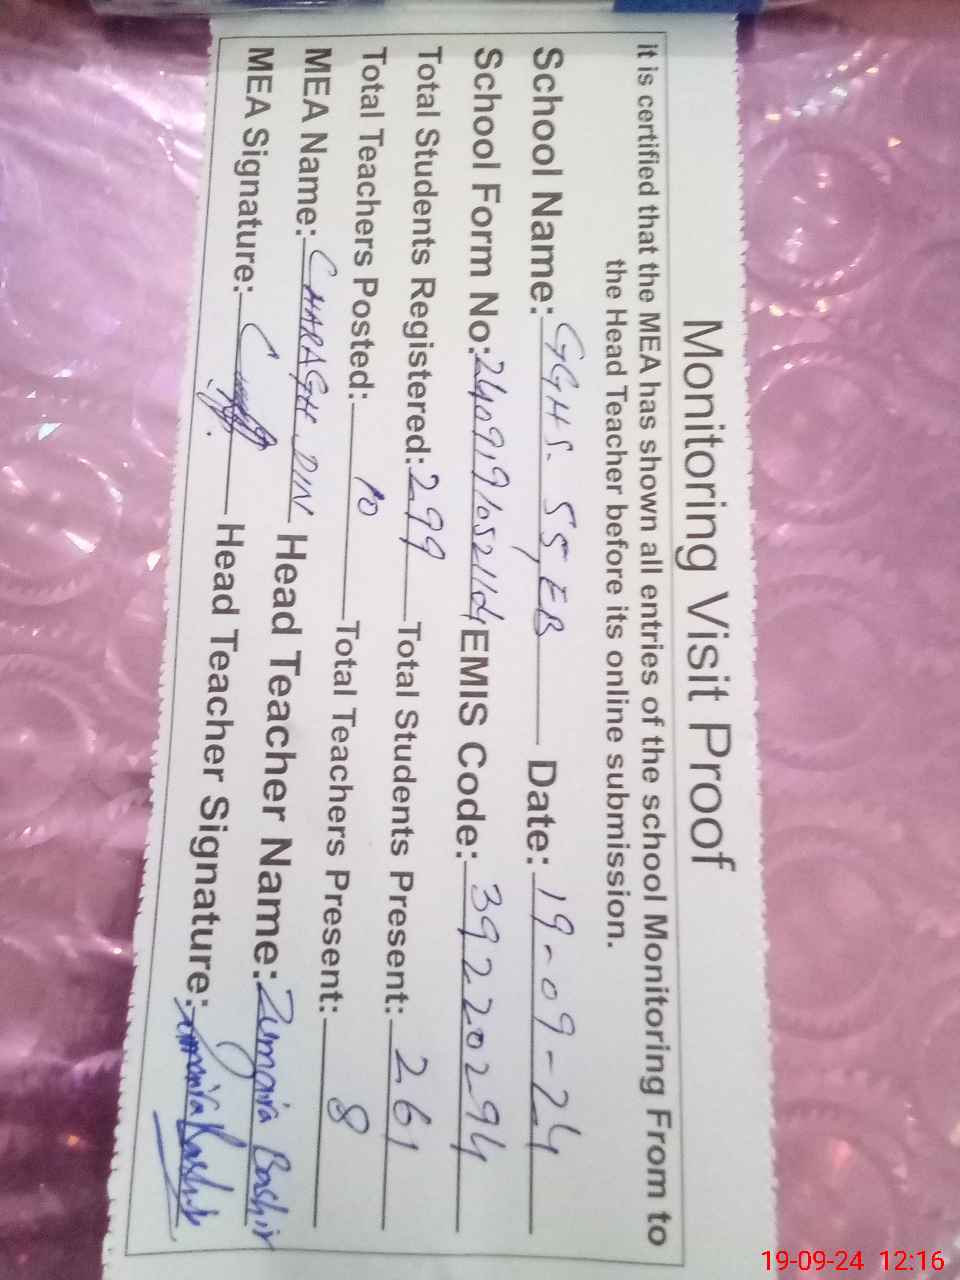 Monitoring Visit Proof
it is certified that the MEA has shown all entries of the school Monitoring From to
the Head Teacher before its online submission.
School Name: GGHS. 55 EB Date: 19-09-24
School Form No: EMIS Code: 39220294
Total Students Registered: 299 Total Students Present: 261
Total Teachers Posted: 10 Total Teachers Present: 8
MEA Name: CHARAGH DIN Head Teacher Name: Zumaira Bashir
MEA Signature: Head Teacher Signature:
19-09-24 12:16